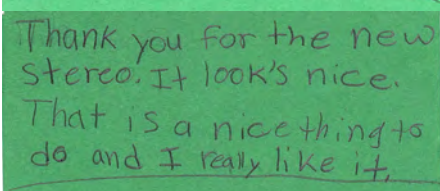 Thank you for the new
stereo. It look's nice.
That is a nice thing to
do and I really like it.